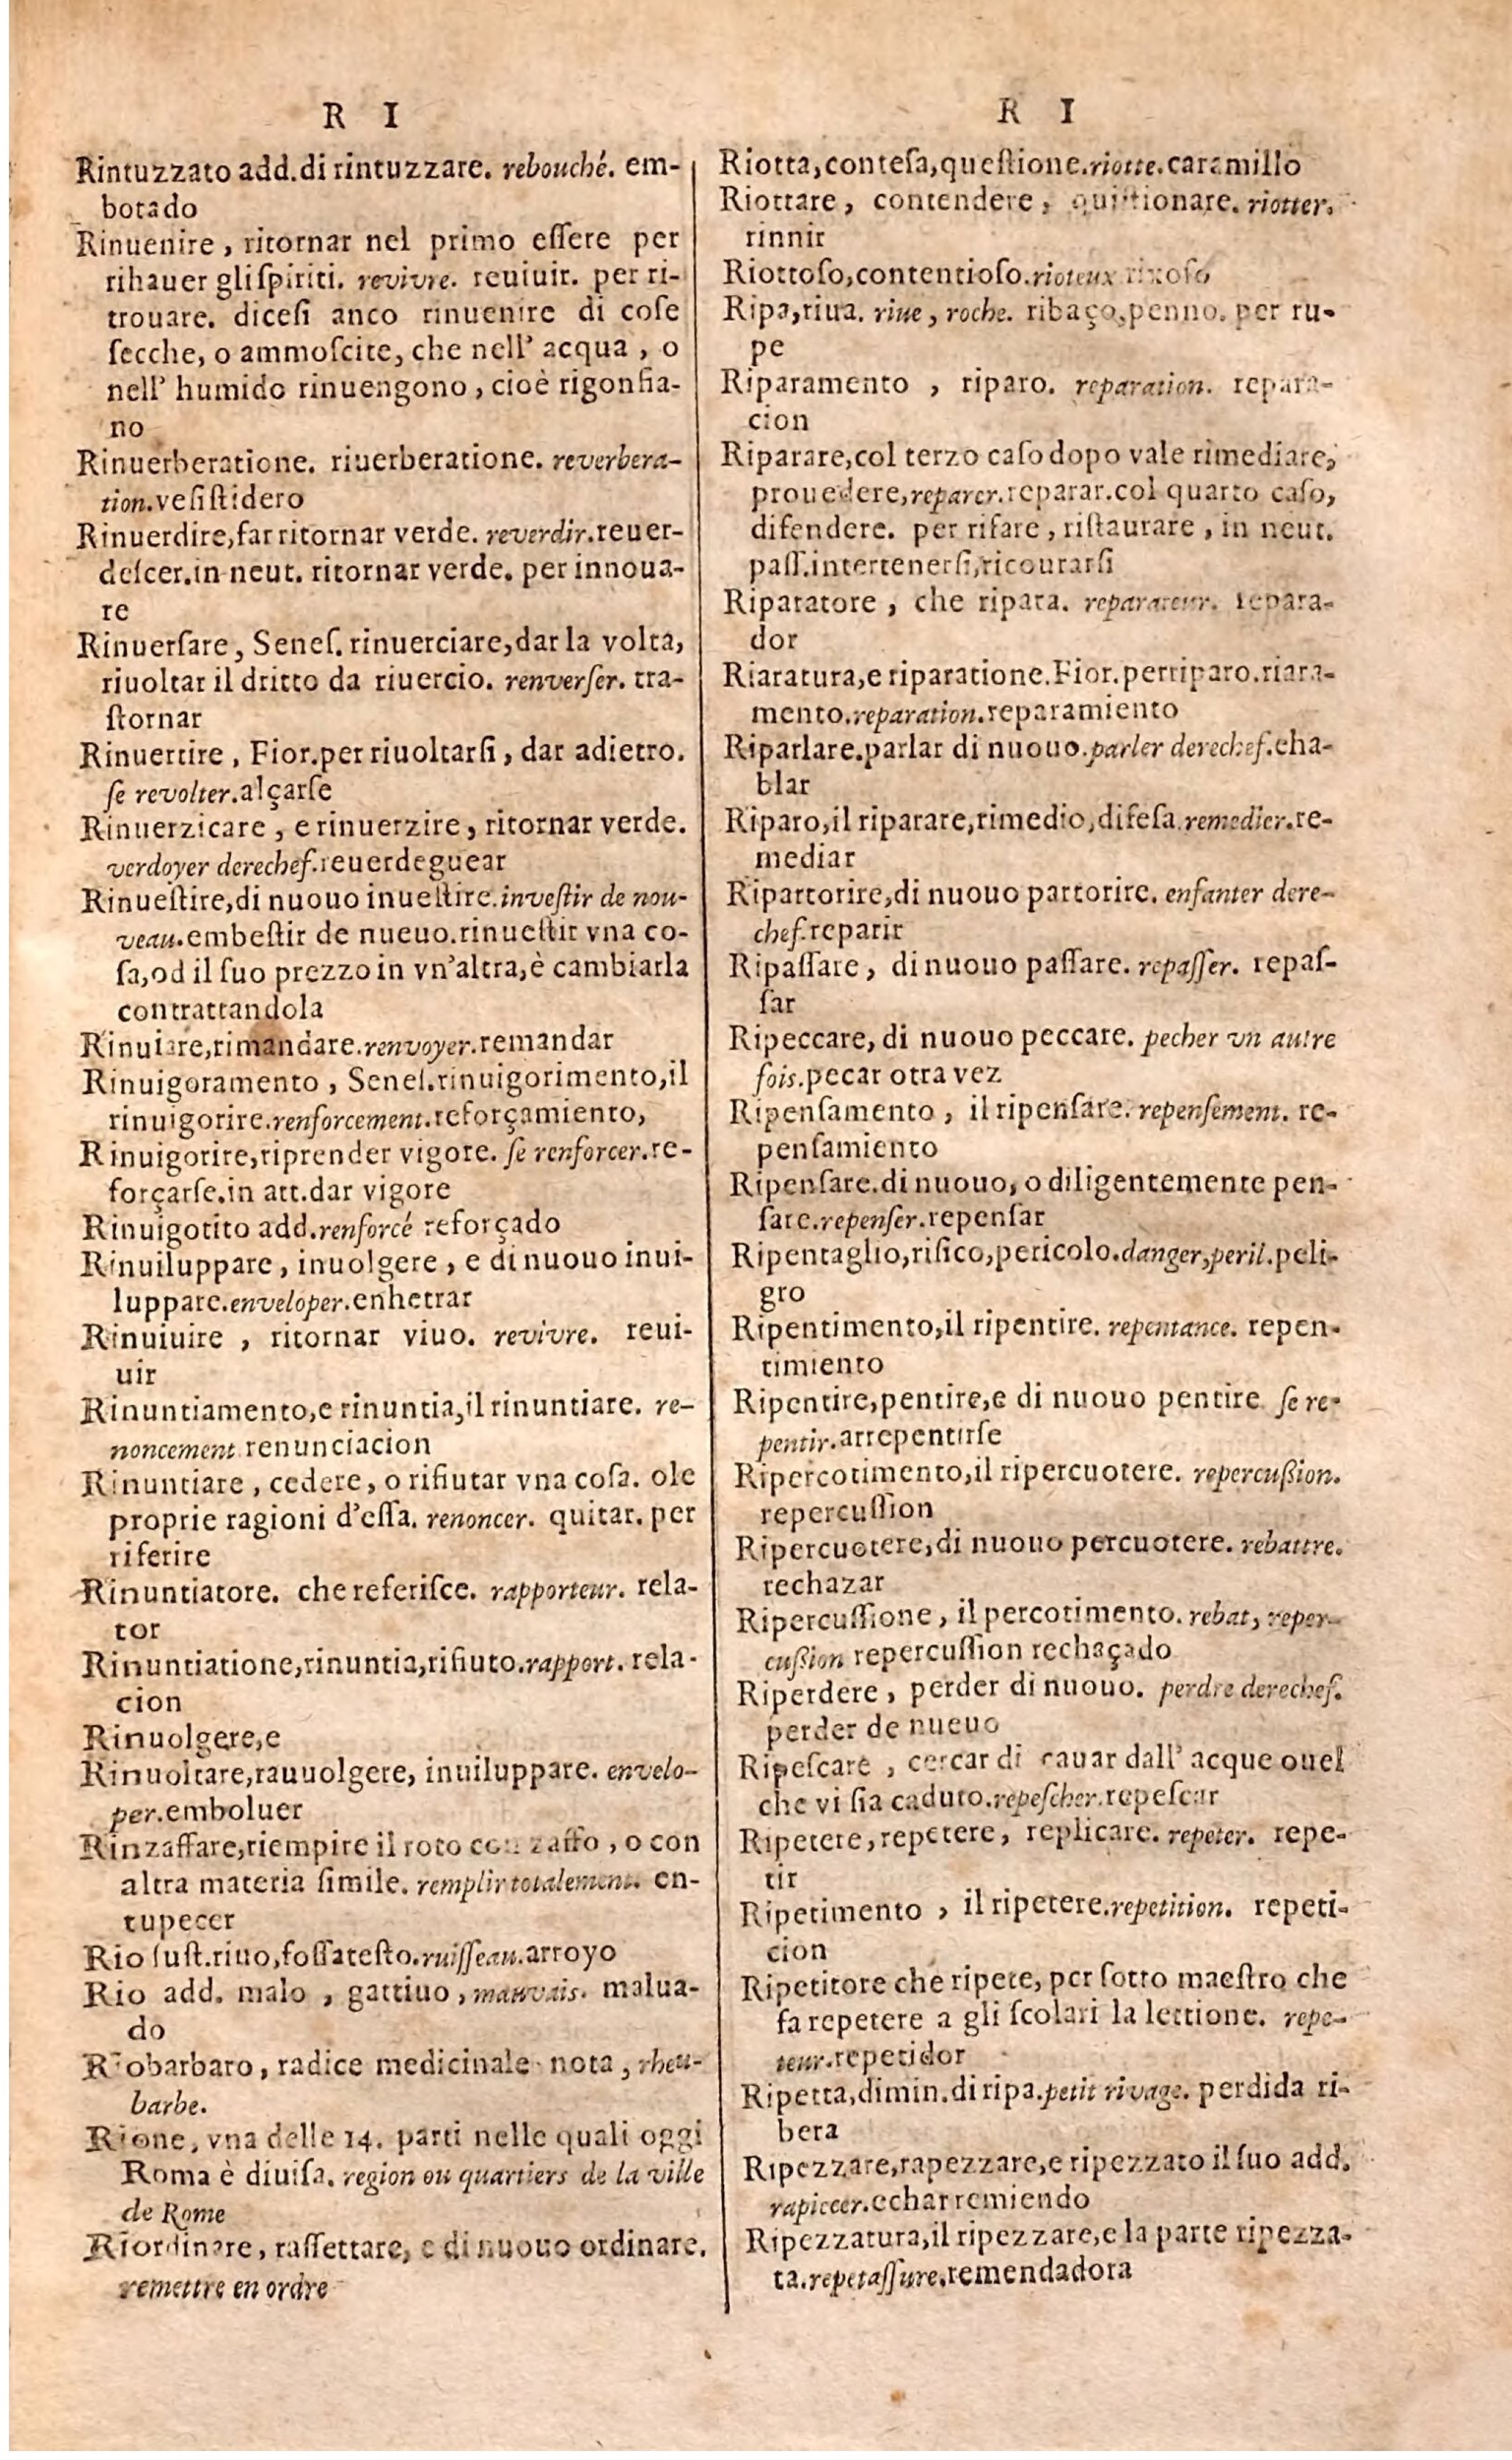 R I
Rintuzzato add.di rintuzzare. rebouché. em-
botado
Rinuenire , ritornar nel primo eſſere per
rihauer gli ſpiriti. revivre. reuiuir. per ri-
trouare. diceſi anco rinuenire di coſe
ſecche, o ammoſcite, che nell' acqua , o
nell' humido rinuengono , cioè rigonfia-
no
Rinuerberatione. riuerberatione. reverbera-
tion.veſiſtidero
Rinuerdire,far ritornar verde. reverdir.reuer-
deſcer.in neut. ritornar verde. per innoua-
re
Rinuerſare , Seneſ. rinuerciare,dar la volta,
riuoltar il dritto da riuercio. renverſer. tra-
ſtornar
Rinuertire , Fior.per riuoltarſi , dar adietro.
ſe revolter.alçarſe
Rinuerzicare , e rinuerzire , ritornar verde.
verdoyer derechef.reuerdeguear
Rinueſtire,di nuouo inueſtire.inveſtir de nou-
veau.embeſtir de nueuo.rinueſtir vna co-
ſa,od il ſuo prezzo in vn'altra,è cambiarla
contrattandola
Rinuiare,rimandare.renvoyer.remandar
Rinuigoramento , Seneſ.rinuigorimento,il
rinuigorire.renforcement.reforçamiento,
Rinuigorire,riprender vigore. ſe renforcer.re-
forçarſe.in att.dar vigore
Rinuigotito add.renforcé reforçado
Rinuiluppare , inuolgere , e di nuouo inui-
luppare.enveloper.enhetrar
Rinuiuire , ritornar viuo. revivre. reui-
uir
Rinuntiamento,e rinuntia,il rinuntiare. re-
noncement renunciacion
Rinuntiare , cedere , o rifiutar vna coſa. ole
proprie ragioni d'eſſa. renoncer. quitar. per
riferire
Rinuntiatore. che referiſce. rapporteur. rela-
tor
Rinuntiatione,rinuntia,rifiuto.rapport. rela-
cion
Rinuolgere,e
Rinuoltare,rauuolgere, inuiluppare. envelo-
per.emboluer
Rinzaffare,riempire il roto con zaffo , o con
altra materia ſimile. remplir totalement. en-
tupecer
Rio ſuſt.riuo,foſſateſto.ruiſſeau.arroyo
Rio add. malo , gattiuo , mauvais. malua-
do
Riobarbaro , radice medicinale nota , rheu-
barbe.
Rione, vna delle 14. parti nelle quali oggi
Roma è diuiſa. region ou quartiers de la ville
de Rome
Riordinare , raſſettare, e di nuouo ordinare.
remettre en ordre
R I
Riotta,conteſa,queſtione.riotte.caramillo
Riottare , contendere , quiſtionare. riotter.
rinnir
Riottoſo,contentioſo.rioteux rixoſo
Ripa,riua. riue , roche. ribaço,penno. per ru-
pe
Riparamento , riparo. reparation. repara-
cion
Riparare,col terzo caſo dopo vale rimediare,
prouedere,reparer.reparar.col quarto caſo,
difendere. per rifare , riſtaurare , in neut.
paſſ.intertenerſi,ricourarſi
Riparatore , che ripara. reparateur. repara-
dor
Riaratura,e riparatione.Fior.per riparo.riara-
mento.reparation.reparamiento
Riparlare.parlar di nuouo.parler derechef.cha-
blar
Riparo,il riparare,rimedio,difeſa.remedier.re-
mediar
Ripartorire,di nuouo partorire. enfanter dere-
chef.reparir
Ripaſſare , di nuouo paſſare. repaſſer. repaſ-
ſar
Ripeccare, di nuouo peccare. pecher vn autre
fois.pecar otra vez
Ripenſamento , il ripenſare. repenſement. re-
penſamiento
Ripenſare.di nuouo, o diligentemente pen-
ſare.repenſer.repenſar
Ripentaglio,riſico,pericolo.danger,peril.peli-
gro
Ripentimento,il ripentire. repentance. repen-
timiento
Ripentire,pentire,e di nuouo pentire ſe re-
pentir.arrepentirſe
Ripercotimento,il ripercuotere. repercußion.
repercuſſion
Ripercuotere,di nuouo percuotere. rebattre.
rechazar
Ripercuſſione , il percotimento. rebat, reper-
cußion repercuſſion rechaçado
Riperdere , perder di nuouo. perdre derechef.
perder de nueuo
Ripeſcare , cercar di cauar dall' acque ouel
che vi ſia caduto.repeſcher.repeſcar
Ripetere,repetere, replicare. repeter. repe-
tir
Ripetimento , il ripetere.repetition. repeti-
cion
Ripetitore che ripete, per ſotto maeſtro che
fa repetere a gli ſcolari la lettione. repe-
teur.repetidor
Ripetta,dimin.di ripa.petit rivage. perdida ri-
bera
Ripezzare,rapezzare,e ripezzato il ſuo add.
rapiecer.echar remiendo
Ripezzatura,il ripezzare,e la parte ripezza-
ta.repetaſſure.remendadora